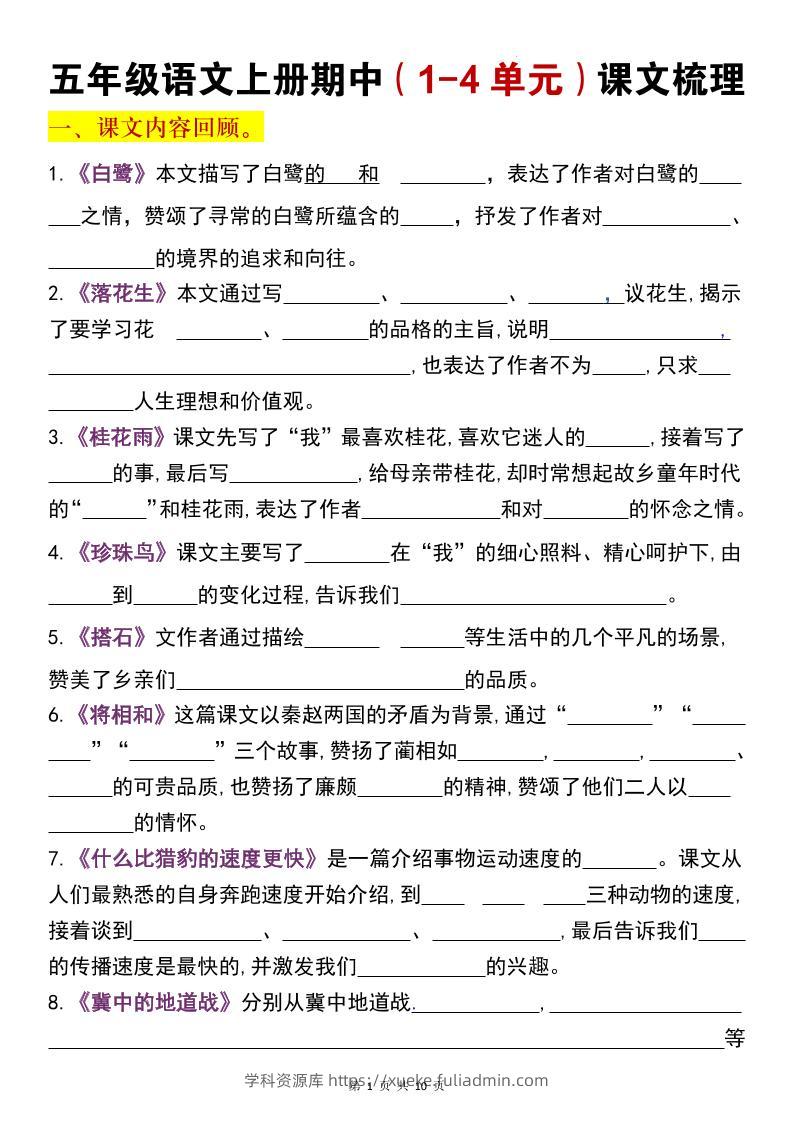 五年级语文上册期中（1-4 单元）课文梳理
一、课文内容回顾。
1.《白鹭》本文描写了白鹭的___和________，表达了作者对白鹭的____
___之情，赞颂了寻常的白鹭所蕴含的_____，抒发了作者对____________、
__________的境界的追求和向往。
2.《落花生》本文通过写_________、__________、_______，_议花生,揭示
了要学习花 ________、________的品格的主旨,说明________________，
__________________________________,也表达了作者不为_____,只求___
________人生理想和价值观。
3.《桂花雨》课文先写了“我”最喜欢桂花,喜欢它迷人的______,接着写了
______的事,最后写____________,给母亲带桂花,却时常想起故乡童年时代
的“______”和桂花雨,表达了作者_____________和对________的怀念之情。
4.《珍珠鸟》课文主要写了________在“我”的细心照料、精心呵护下,由
______到______的变化过程,告诉我们_________________________。
5.《搭石》文作者通过描绘_______ ______等生活中的几个平凡的场景,
赞美了乡亲们___________________________的品质。
6.《将相和》这篇课文以秦赵两国的矛盾为背景,通过“________”“_____
____”“________”三个故事,赞扬了蔺相如________,________,________、
______的可贵品质,也赞扬了廉颇________的精神,赞颂了他们二人以____
________的情怀。
7.《什么比猎豹的速度更快》是一篇介绍事物运动速度的_______。课文从
人们最熟悉的自身奔跑速度开始介绍,到____ ____ ____三种动物的速度,
接着谈到____________、____________、____________,最后告诉我们____
的传播速度是最快的,并激发我们____________的兴趣。
8.《冀中的地道战》分别从冀中地道战.____________,__________________
________________________________________________________________等
学科资源库 https://xueke.fuliadmin.com
第 1 页 共 10 页